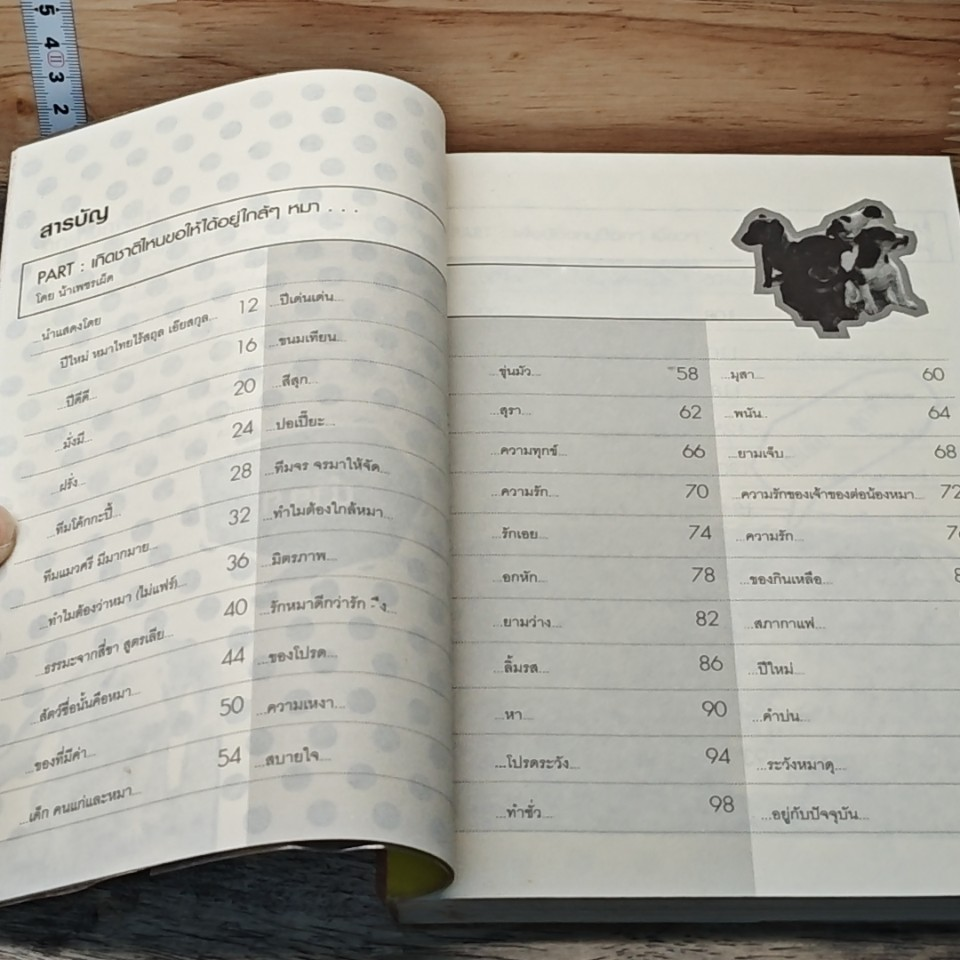 5
4
3
2
สารบัญ
PART : เกิดชาติไหนขอให้ได้อยู่ใกล้ๆ หมา . . .
โดย น้าเพชรเม็ด
...นำแสดงโดย
ปีใหม่ หมาไทยไร้สกุล เอ๊ยสกุล... 12 ...ปีเด่นเด่น...
...ปีตีตี... 16 ...ขนมเทียน...
...มั่งมี... 20 ...สีสุก...
...ฝรั่ง... 24 ...ปอเปี๊ยะ...
...ทีมโค้กกะปี้... 28 ...ทีมจร จรมาให้จัด...
ทีมแมวศรี มีมากมาย... 32 ...ทำไมต้องใกล้หมา...
...ทำไมต้องว่าหมา (ไม่แฟร์)... 36 ...มิตรภาพ...
...ธรรมะจากสี่ขา สูตรเลีย... 40 ...รักหมาดีกว่ารัก
...สัตว์ชื่อนั้นคือหมา... 44 ...ของโปรด...
...ของที่มีค่า... 50 ...ความเหงา...
...เด็ก คนแก่และหมา... 54 ...สบายใจ...
...ขุ่นมัว... 58 ...มุสา... 60
...สุรา... 62 ...พนัน... 64
...ความทุกข์... 66 ...ยามเจ็บ... 68
...ความรัก... 70 ...ความรักของเจ้าของต่อน้องหมา... 72
...รักเอย... 74 ...ความรัก...
...อกหัก... 78 ...ของกินเหลือ...
...ยามว่าง... 82 ...สภากาแฟ...
...ลิ้มรส... 86 ...ปีใหม่...
...หา... 90 ...คำบ่น...
...โปรดระวัง... 94 ...ระวังหมาดุ...
...ทำชั่ว... 98 ...อยู่กับปัจจุบัน...